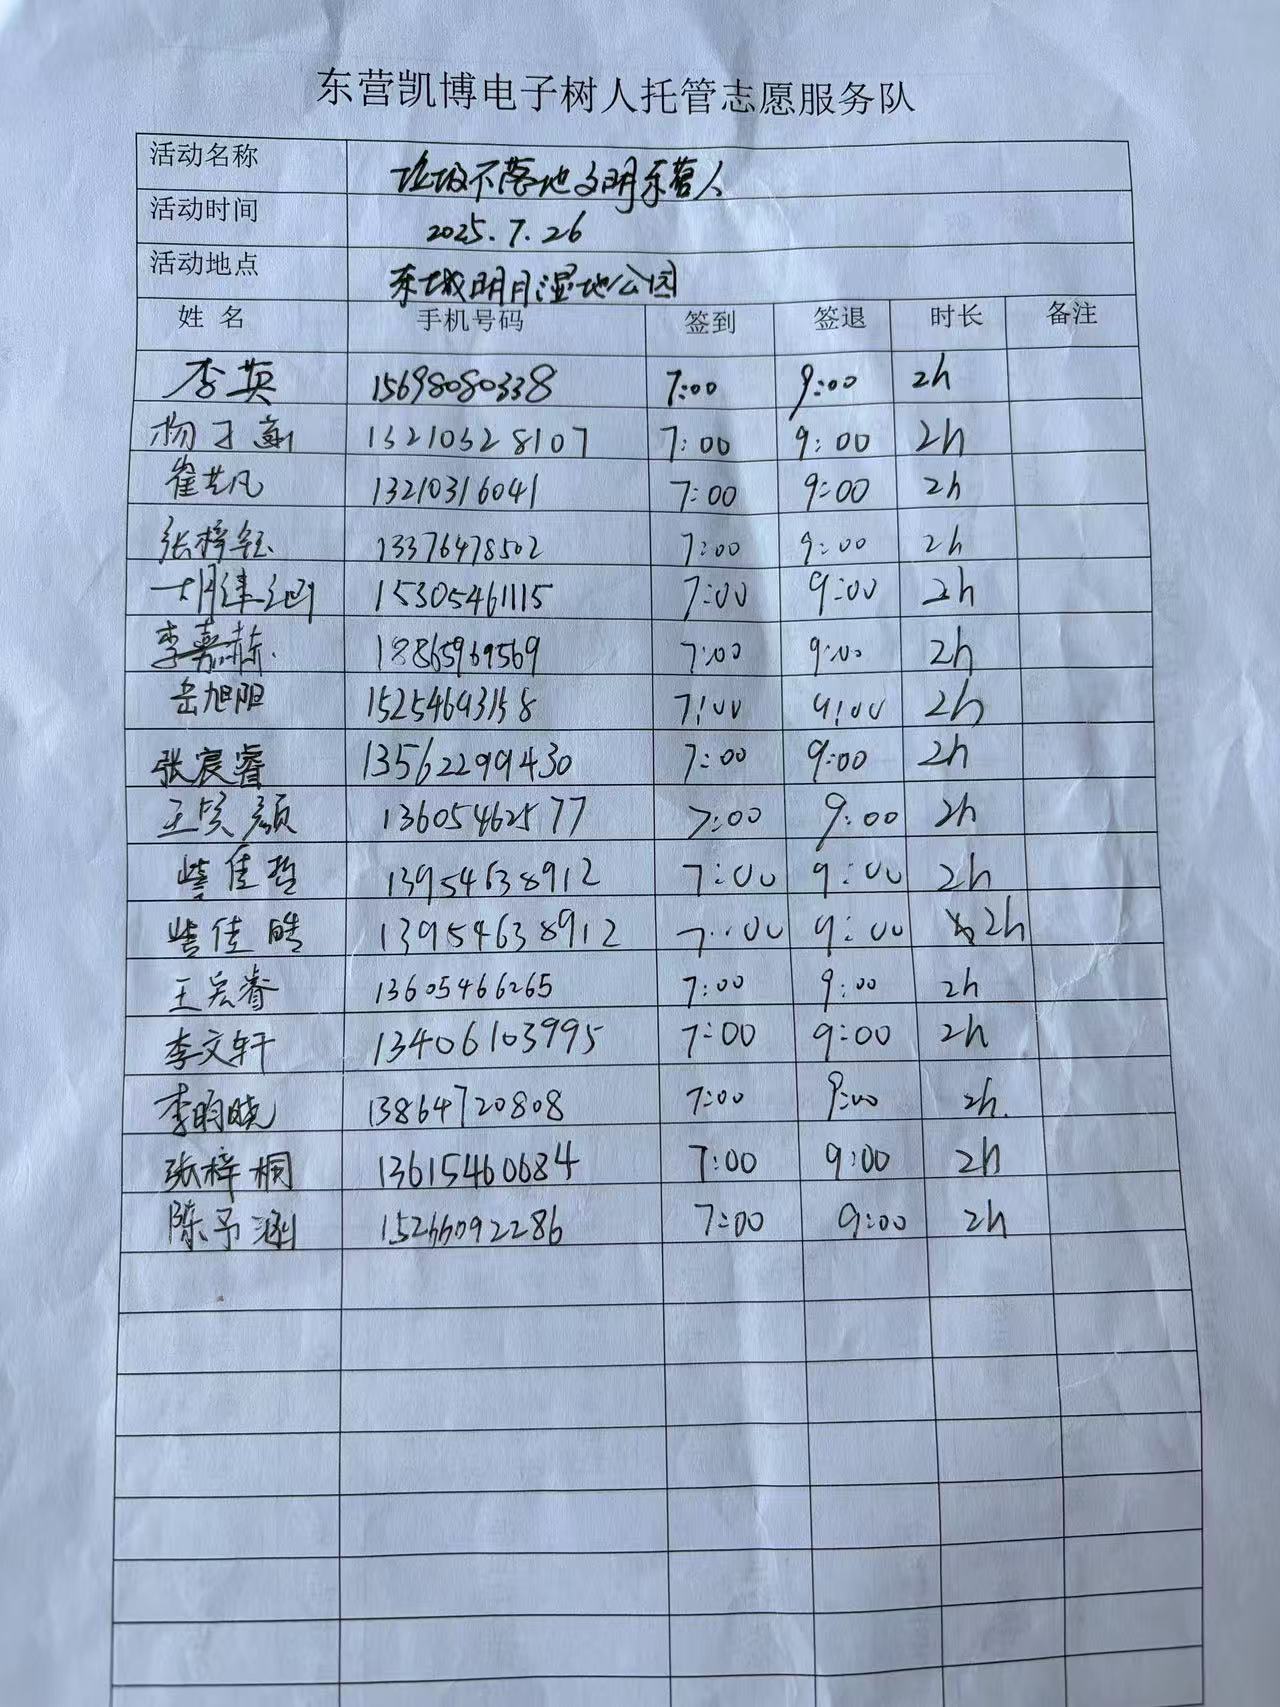 东营凯博电子树人托管志愿服务队
活动名称 垃圾不落地文明东营人
活动时间 2025.7.26
活动地点 东城明月湿地公园
姓名 手机号码 签到 签退 时长 备注
李英 15698080338 7:00 9:00 2h
杨子 13210328107 7:00 9:00 2h
崔艺凡 13210316041 7:00 9:00 2h
张梓钰 13376478502 7:00 9:00 2h
胡津 15305461115 7:00 9:00 2h
李嘉赫 18865969569 7:00 9:00 2h
岳旭阳 15254643158 7:00 9:00 2h
张宸睿 13562299430 7:00 9:00 2h
王 颜 13605462577 7:00 9:00 2h
柴佳哲 13954638912 7:00 9:00 2h
柴佳皓 13954638912 7:00 9:00 2h
王宏睿 13605466265 7:00 9:00 2h
李文轩 13406103995 7:00 9:00 2h
李昀晓 13864720808 7:00 9:00 2h.
张梓桐 13615460684 7:00 9:00 2h
陈予涵 15266092286 7:00 9:00 2h